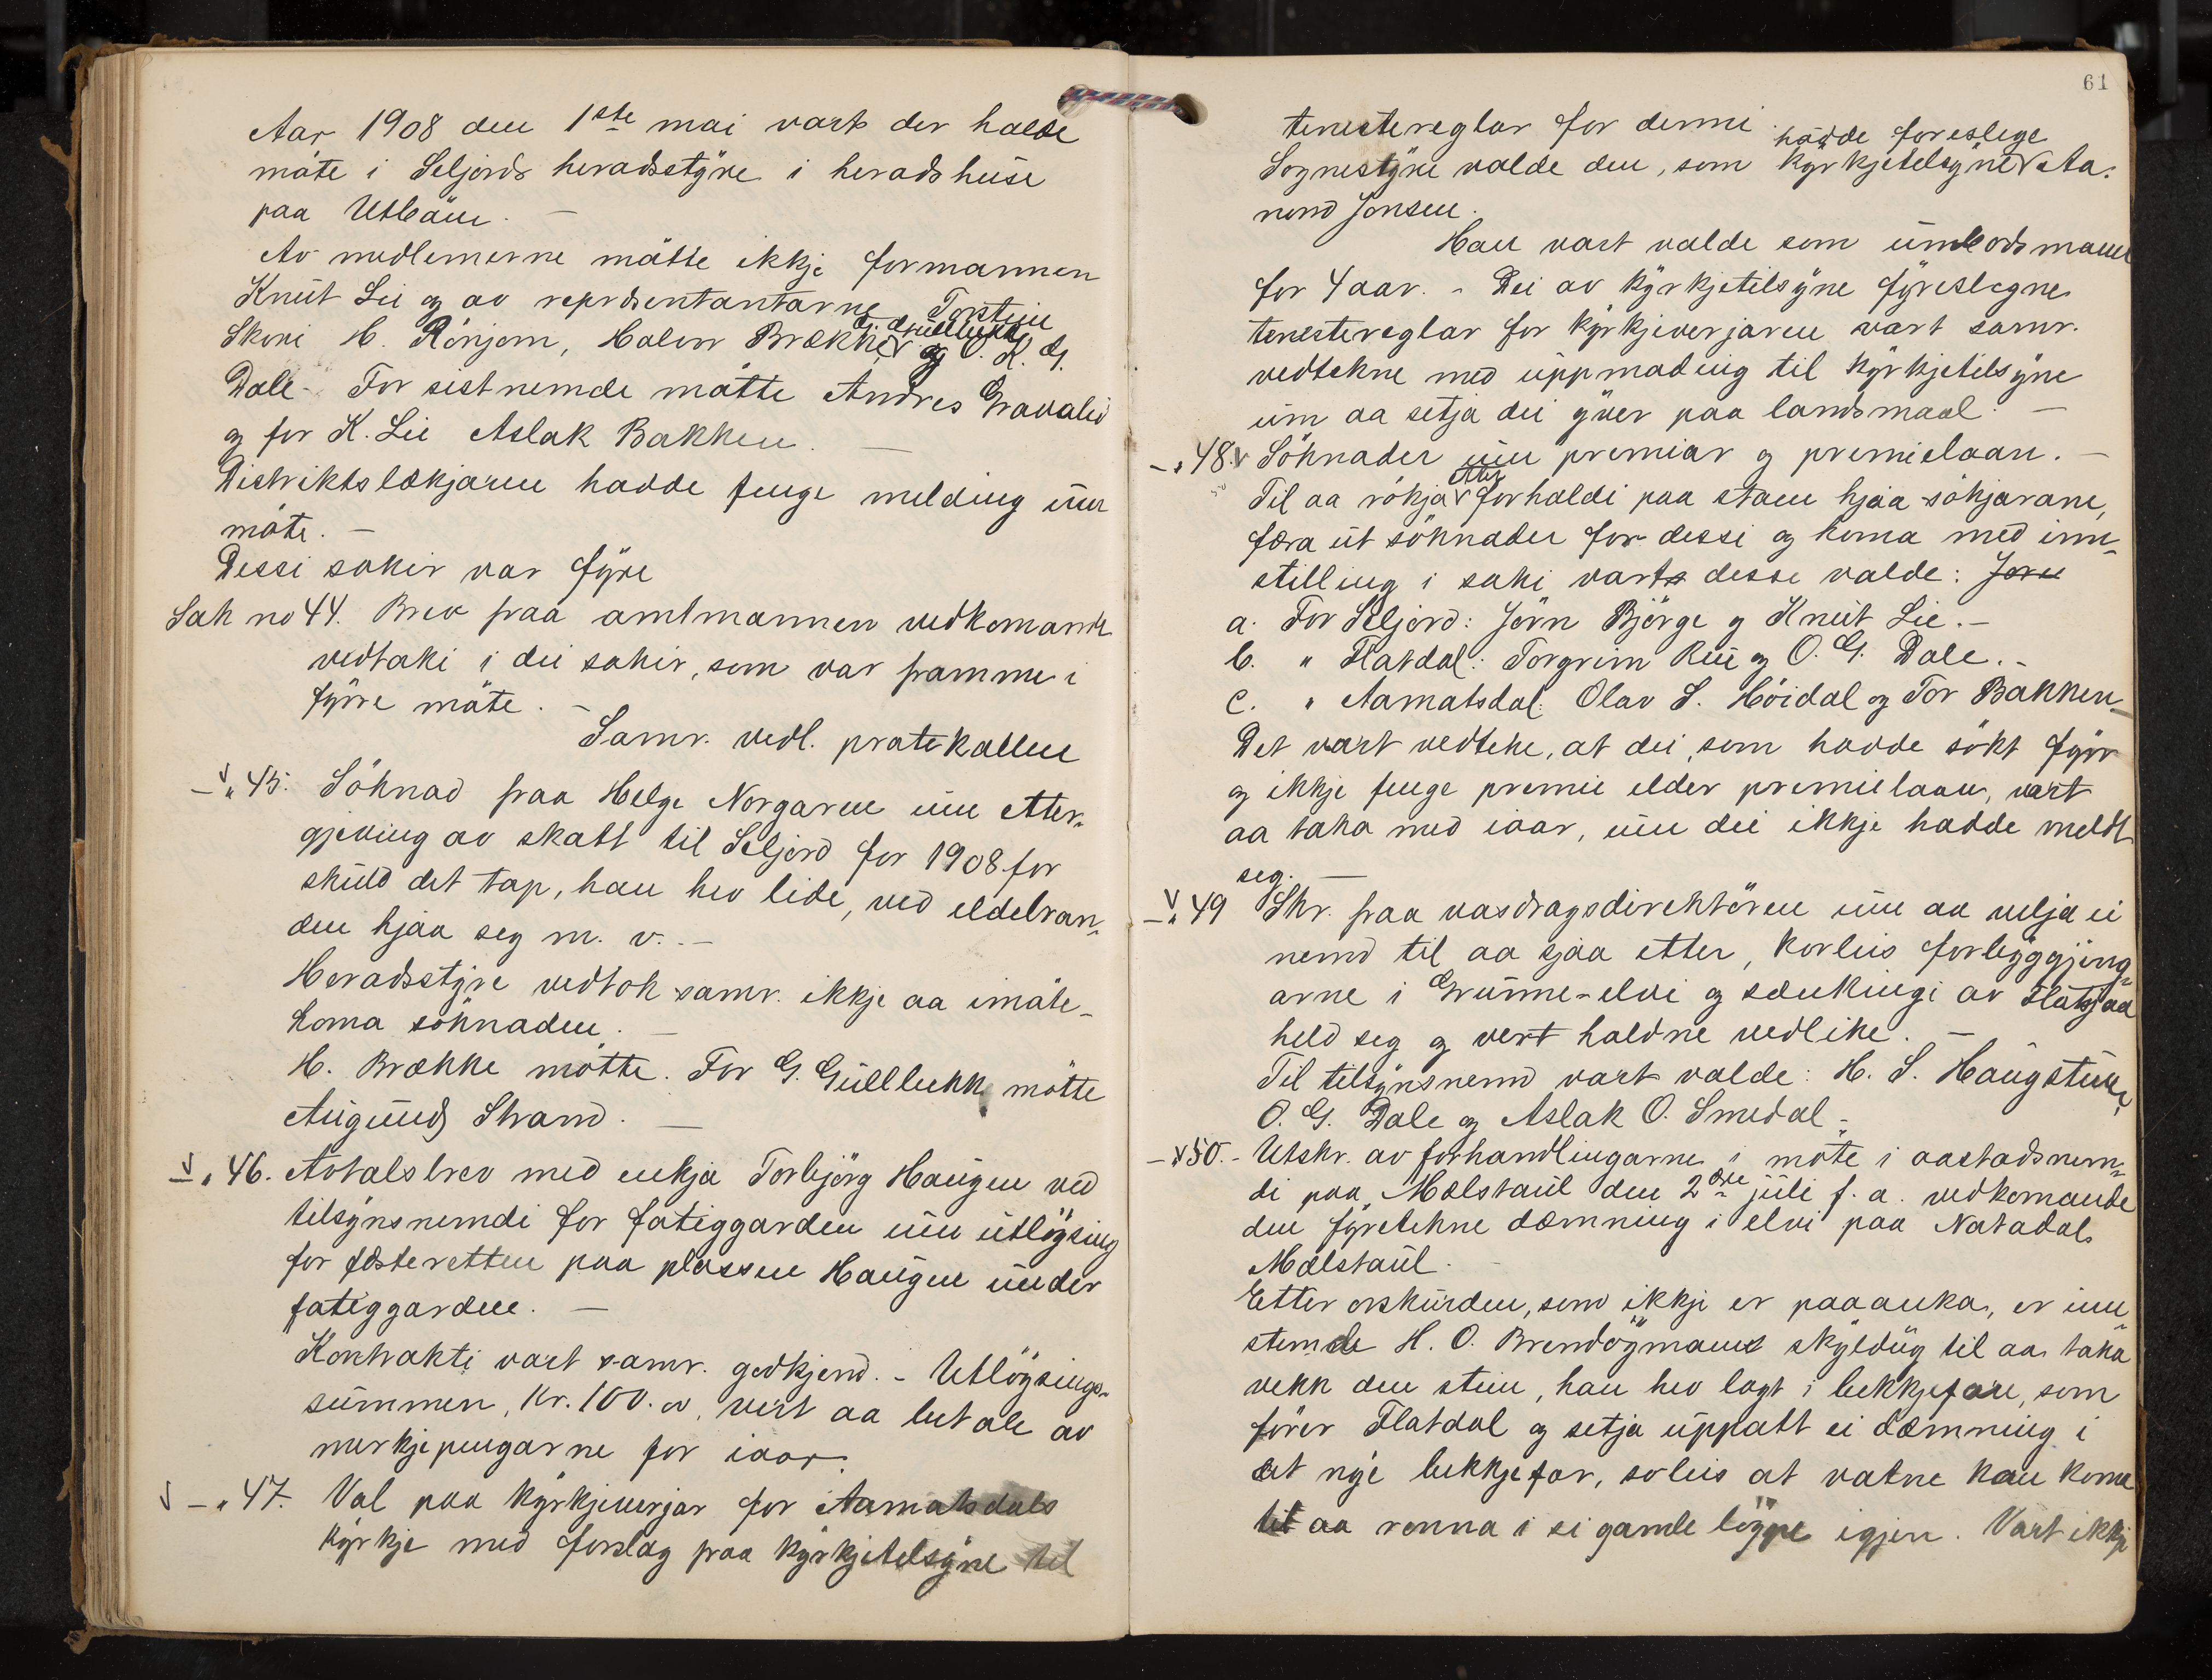 Aar 1908 den 1ste mai vart der halde
møte i Seljords heradsstyre i heradshuse
paa Utbøen. -
Av medlemerne møtte ikkje formannen
Knut Lie og av repræsentantarne Torstein
G. Gullbekk
Skori H. Rønjom, Halvor Brække, og O. K. G.
Dale - For sistnemde møtte Andres Gravalid
og for K. Lie Aslak Bakken. -
Distriktslækjaren hadde fenge melding um
møte. -
Dessi sakir var fyre
Sak no 44. Brev fraa amtmannen vedkomande
vedtaki i dei sakir, som var framme i
fyrre møte. -
Samr. vedl. protokollen
- " 45. Søknad fraa Helge Norgaren um etter-
gjeving av skatt til Seljord for 1908 for
skuld det tap, han hev lide, ved eldebran-
den hjaa seg m. v. -
Heradsstyre vedtok samr. ikkje aa imøte-
koma søknaden. -
H. Brække møtte. For G. Gullbekk møtte
Augund Strand. -
- " 46. Avtalsbrev med enkja Torbjørg Haugen ved
tilsynsnemdi for fatiggarden um utløysing
for festeretten paa plassen Haugen under
fatiggarden. -
Kontrakti vart samr. godkjend. - Utløysings-
summen, Kr. 100.00, vert aa betale av
merkjepengarne for iaar.
- " 47. Val paa kyrkjeverjar for Aamatsdals
kyrkje med forslag fraa kyrkjetilsyne til
61
tenestereglar for denni.
hadde foreslege
Sognestyre valde den, som kyrkjetilsyne Aa-
nund Jonsen.
Han vart valde som umbodsmann
for 4 aar. - Dei av kyrkjetilsyne fyreslegne
tenestereglar for kyrkjeverjaren vart samr.
vedtekne med uppmoding til kyrkjetilsyne
um aa setja dei yver paa landsmaal. -
- " 48. Søknader um premiar og premielaan. -
etter
Til aa røkja forholdi paa staen hjaa søkjarane,
føra ut søknader for dessi og koma med inn-
stilling i saki vart desse valde: Jøru
a. For Seljord: Jørn Bjørge og Knut Lie. -
b. " Flatdal: Torgrim Rui og O. G. Dale. -
c. " Aamatsdal: Olav S. Høidal og Tor Bakken -
Det vart vedteke, at dei, som hadde søkt fyrr
og ikkje fenge premie elder premielaan, vart
aa taka med iaar, um dei ikkje hadde meldt
seg. -
- " 49 Skr. fraa vasdragsdirektøren um aa velja ei
nemd til aa sjaa etter, korleis forbyggjing-
arne i Grunne-elvi og sænkingi av Flatsjaa
held seg og vert haldne vedlike. -
Til tilsynsnemd vart valde: H. S. Haugstuen,
O. G. Dale og Aslak O. Smedal -
- " 50. - Utskr. av forhandlingarne i møte i aastadsnem-
di paa Mælstaul den 2dre juli f. a. vedkomande
den fyretekne dæmning i elvi paa Natadal
Mælstaul. -
Etter orskurden, som ikkje er paaanka, er inn-
stemde H. O. Brendøymoen skyldug til aa taka
vekk den stein, han hev lagt i bekkjefare, som
fører Flatdal og setja uppatt ei dæmning i
det nye bekkjefar, soleis at vatne kan koma
til aa renna i si gamle løype igjen. Vart ikkje